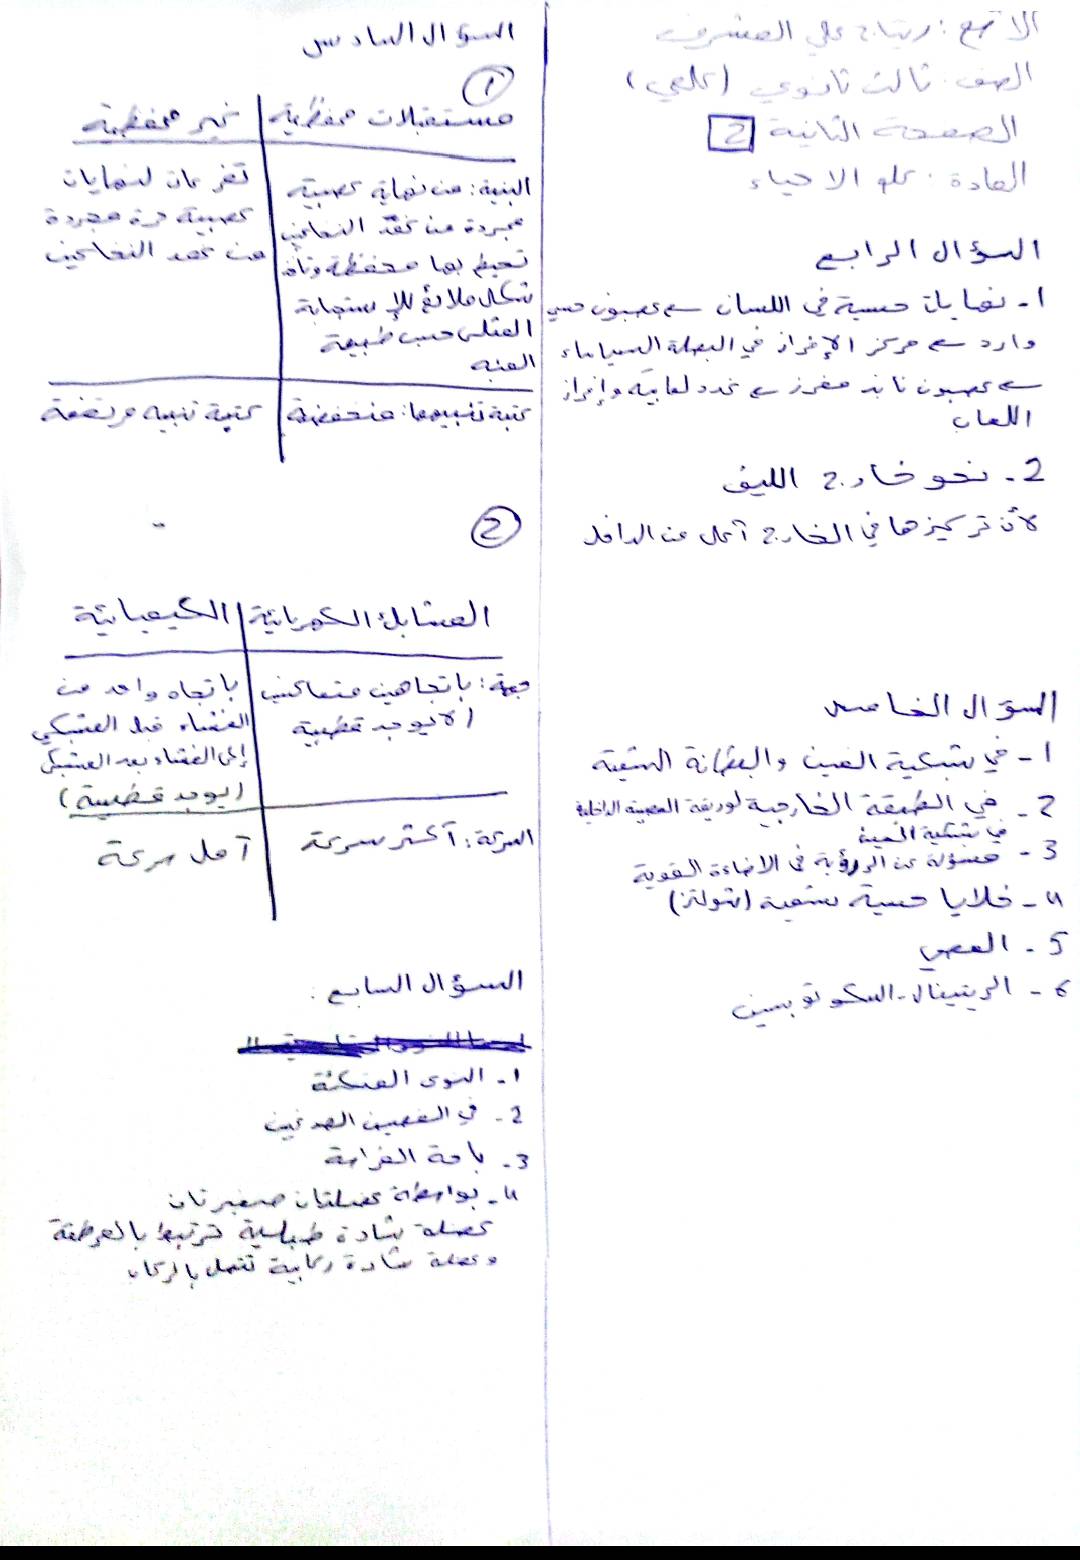 الاسم: ريتاج علي المشرف
الصف: ثالث ثانوي (علمي)
الصفحة الثانية 2
المادة: علم الاحياء
السؤال الرابع
1- نهايات حسية في اللسان ← عصبون حسي
وارد ← مركز الإفراز في البصلة السيسائية
← عصبون نابذ مفرز ← غدد لعابية وإفراز
اللعاب
2- نحو خارج الليف
لأن تركيزها في الخارج أقل من الداخل
السؤال الخامس
1- في شبكية العين والبطانة الشمية
2- في الطبقة الخارجية لوريقة العصبية الداخلية
في شبكية العين
3- مسؤلة عن الرؤية في الاضاءة القوية
4- خلايا حسية شمية (شولتز)
5- العصي
6- الريتينال - السكوتوبسين
السؤال السادس
1
مستقبلات محفظية | غير محفظية
البنية: من نهاية عصبية | تفرعات لنهايات
مجردة من غمد النخاعين | عصبية حرة مجردة
تحيط بها محفظة وتأخذ | من غمد النخاعين
شكل ملائم للإستجابة
المثلى حسب طبيعة
المنبه
عتبة تنبيهها: منخفضة | عتبة تنبيه مرتفعة
2
المشابك الكهربائية | الكيميائية
جهة: باتجاهين متعاكسين | باتجاه واحد من
(لايوجد قطبية | الغشاء قبل المشبكي
إلى الغشاء بعد المشبكي
(يوجد قطبية)
السرعة: أكثر سرعة | أقل سرعة
السؤال السابع:
1- النوى المتكئة
2- في الفصين الصدغين
3- باحة الفراسة
4- بواسطة عضلتان صغيرتان
عضلة شادة طبلية ترتبط بالمطرقة
وعضلة شادة ركابية تتصل بالركاب